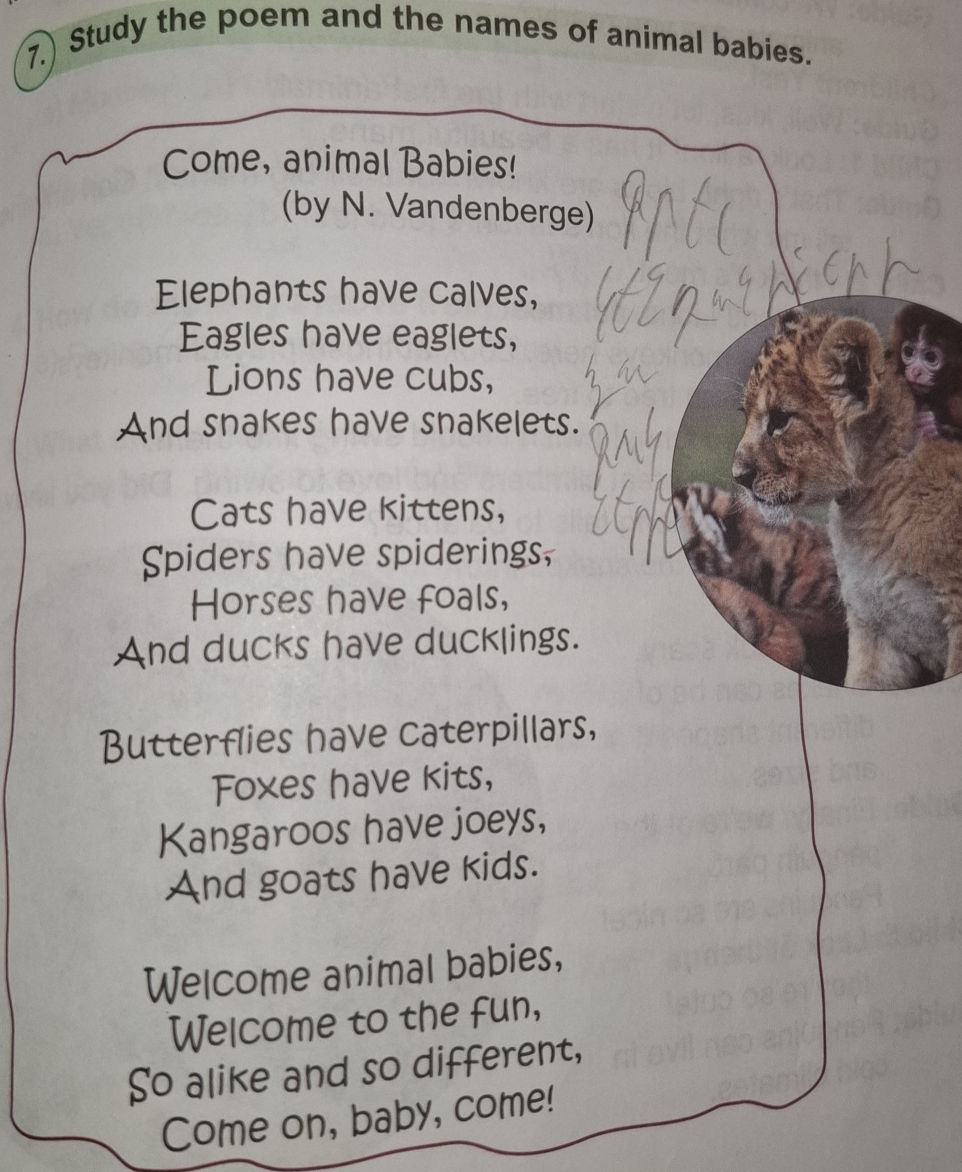 7. Study the poem and the names of animal babies.
Come, animal Babies!
(by N. Vandenberge)
Elephants have calves,
Eagles have eaglets,
Lions have cubs,
And snakes have snakelets.
Cats have kittens,
Spiders have spiderings,
Horses have foals,
And ducks have ducklings.
Butterflies have caterpillars,
Foxes have kits,
Kangaroos have joeys,
And goats have kids.
Welcome animal babies,
Welcome to the fun,
So alike and so different,
Come on, baby, come!